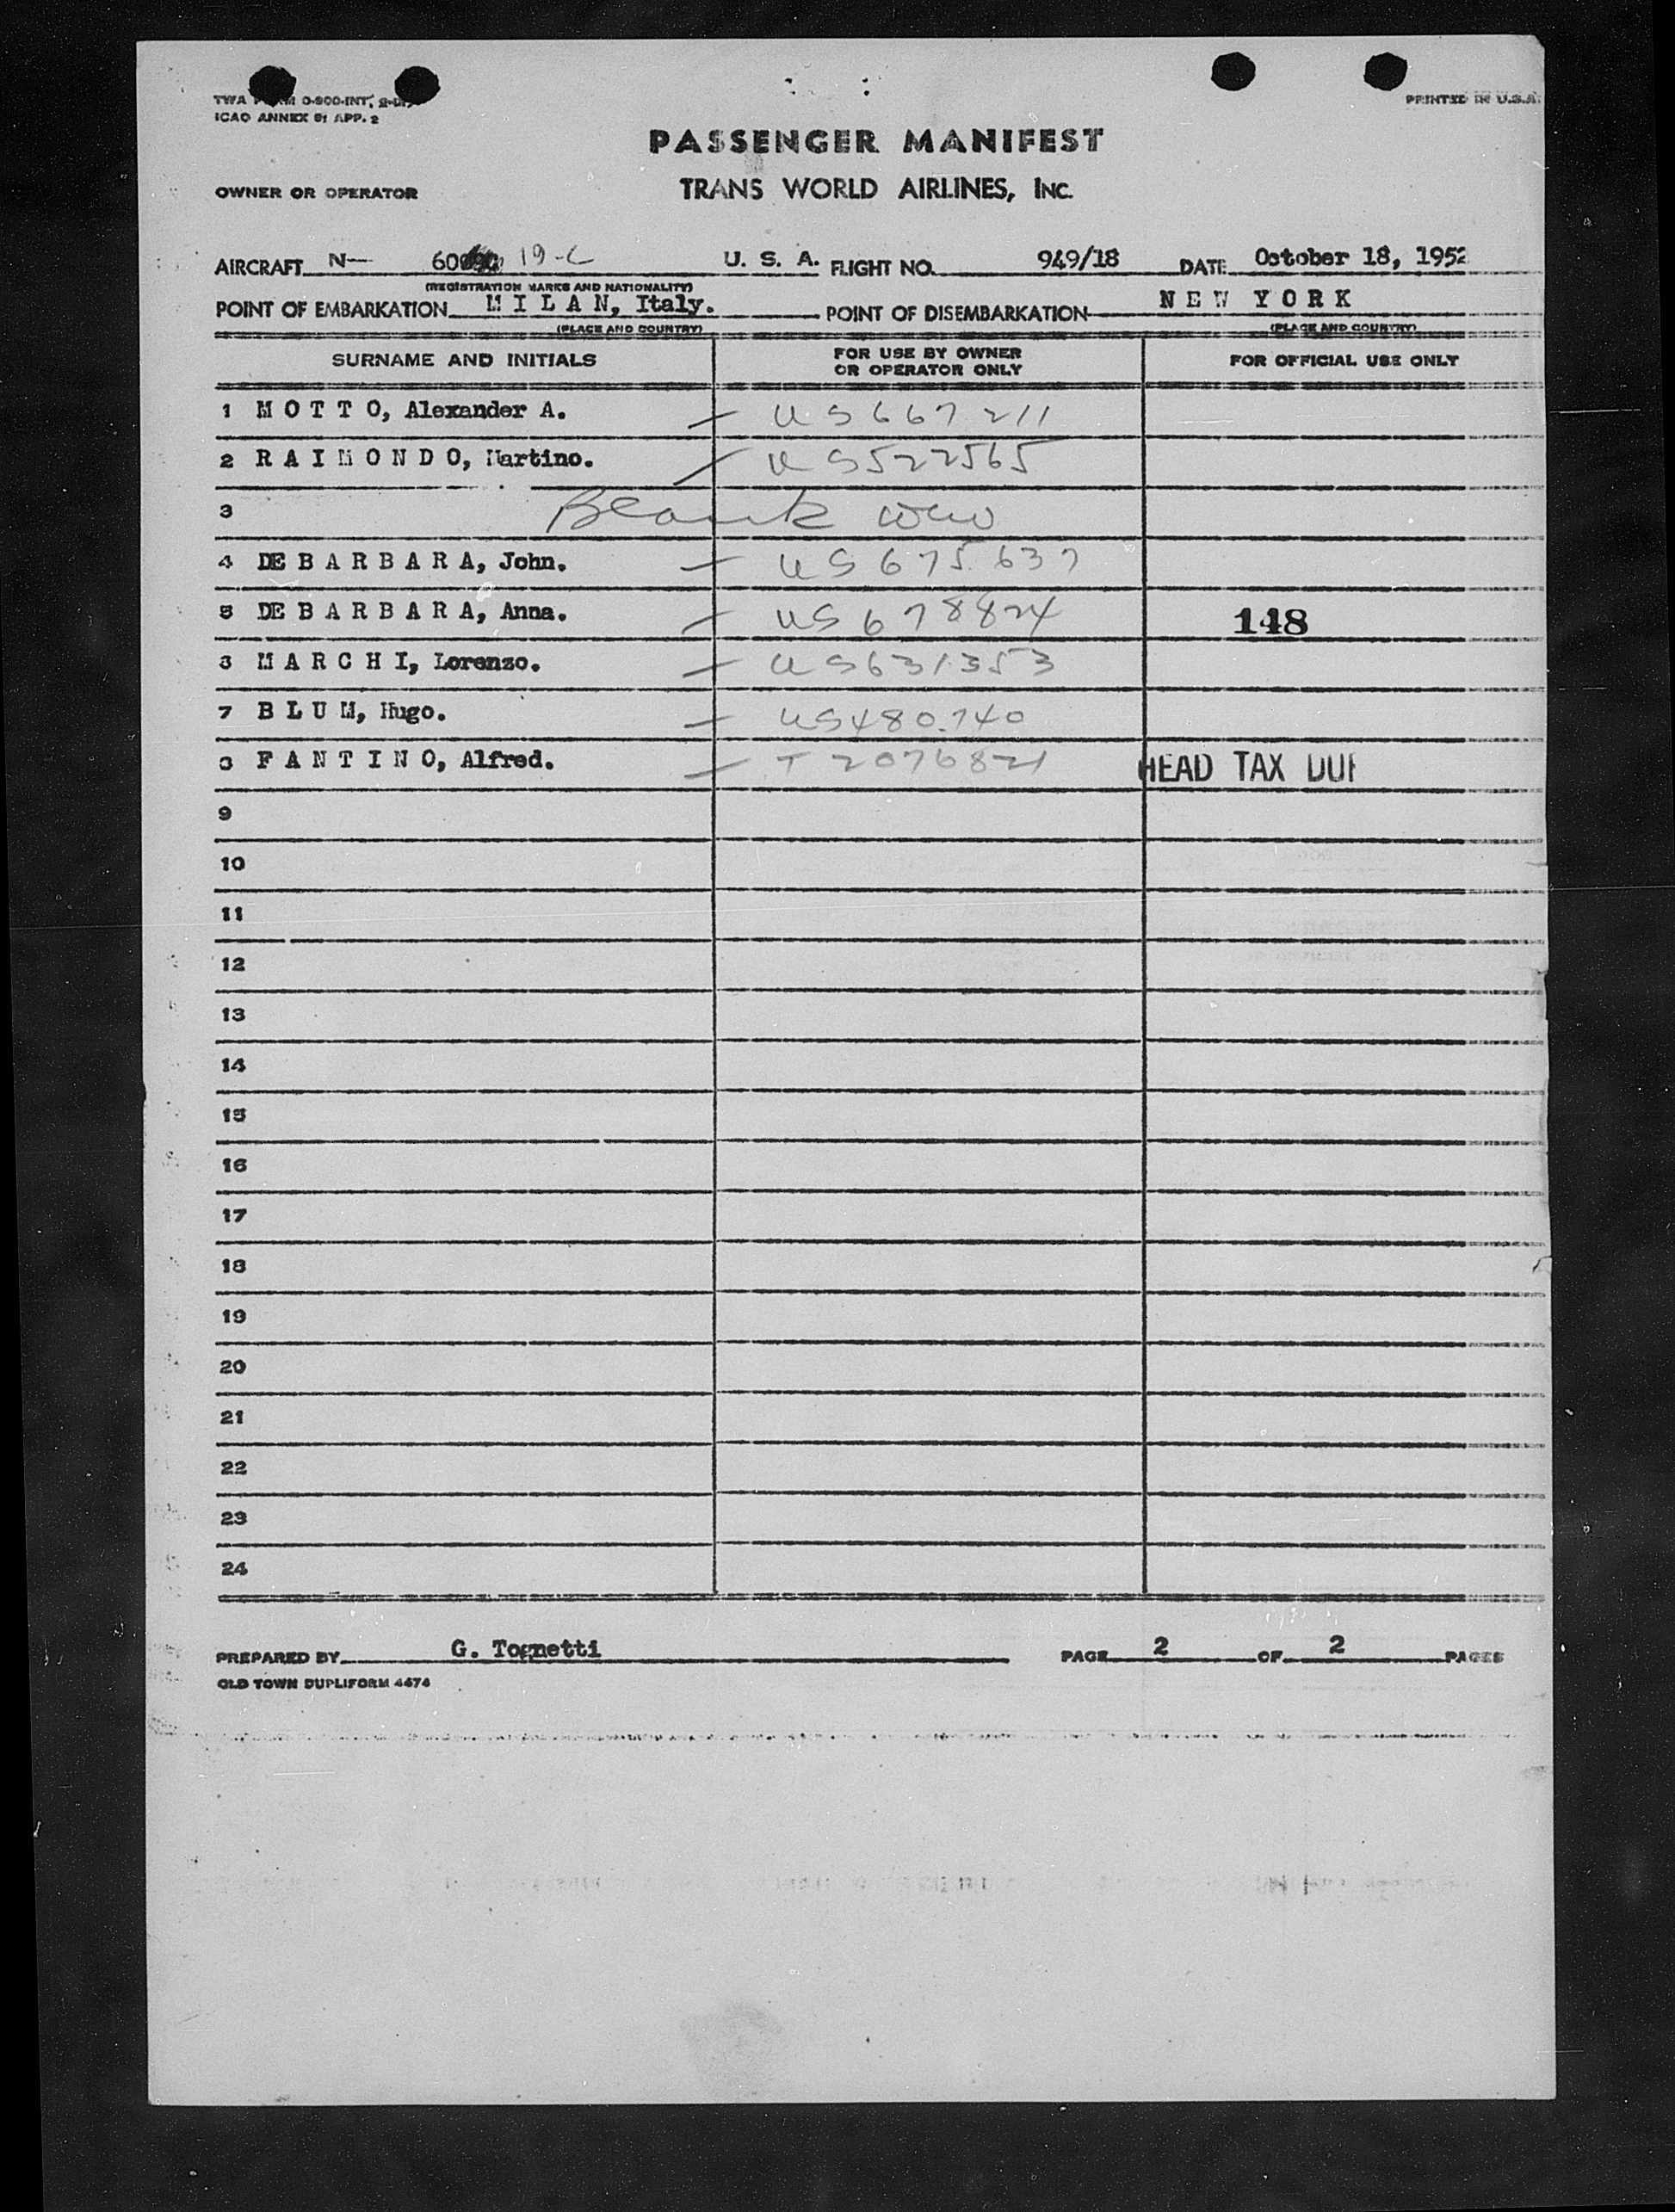 TWA FORM O-800-INT,
ICAO ANNEX 9: APP. 2
PRINTED IN U.S.A.
PASSENGER MANIFEST
OWNER OR OPERATOR TRANS WORLD AIRLINES, INC.
AIRCRAFT N- 60 19-C U. S. A. FLIGHT NO. 949/18 DATE October 18, 1952
(REGISTRATION MARKS AND NATIONALITY)
POINT OF EMBARKATION M I L A N, Italy. POINT OF DISEMBARKATION N E W Y O R K
(PLACE AND COUNTRY) (PLACE AND COUNTRY)
SURNAME AND INITIALS FOR USE BY OWNER OR OPERATOR ONLY FOR OFFICIAL USE ONLY
1 M O T T O, Alexander A. US 667211
2 R A I M O N D O, Martino. US 522565
3 Blank
4 DE B A R B A R A, John. US 675637
5 DE B A R B A R A, Anna. US 678824 148
6 M A R C H I, Lorenzo. US 631353
7 B L U M, Hugo. US 480740
8 F A N T I N O, Alfred. T 2076821 HEAD TAX DUE
9
10
11
12
13
14
15
16
17
18
19
20
21
22
23
24
PREPARED BY G. Tognetti PAGE 2 OF 2 PAGES
OLD TOWN DUPLIFORM 4474